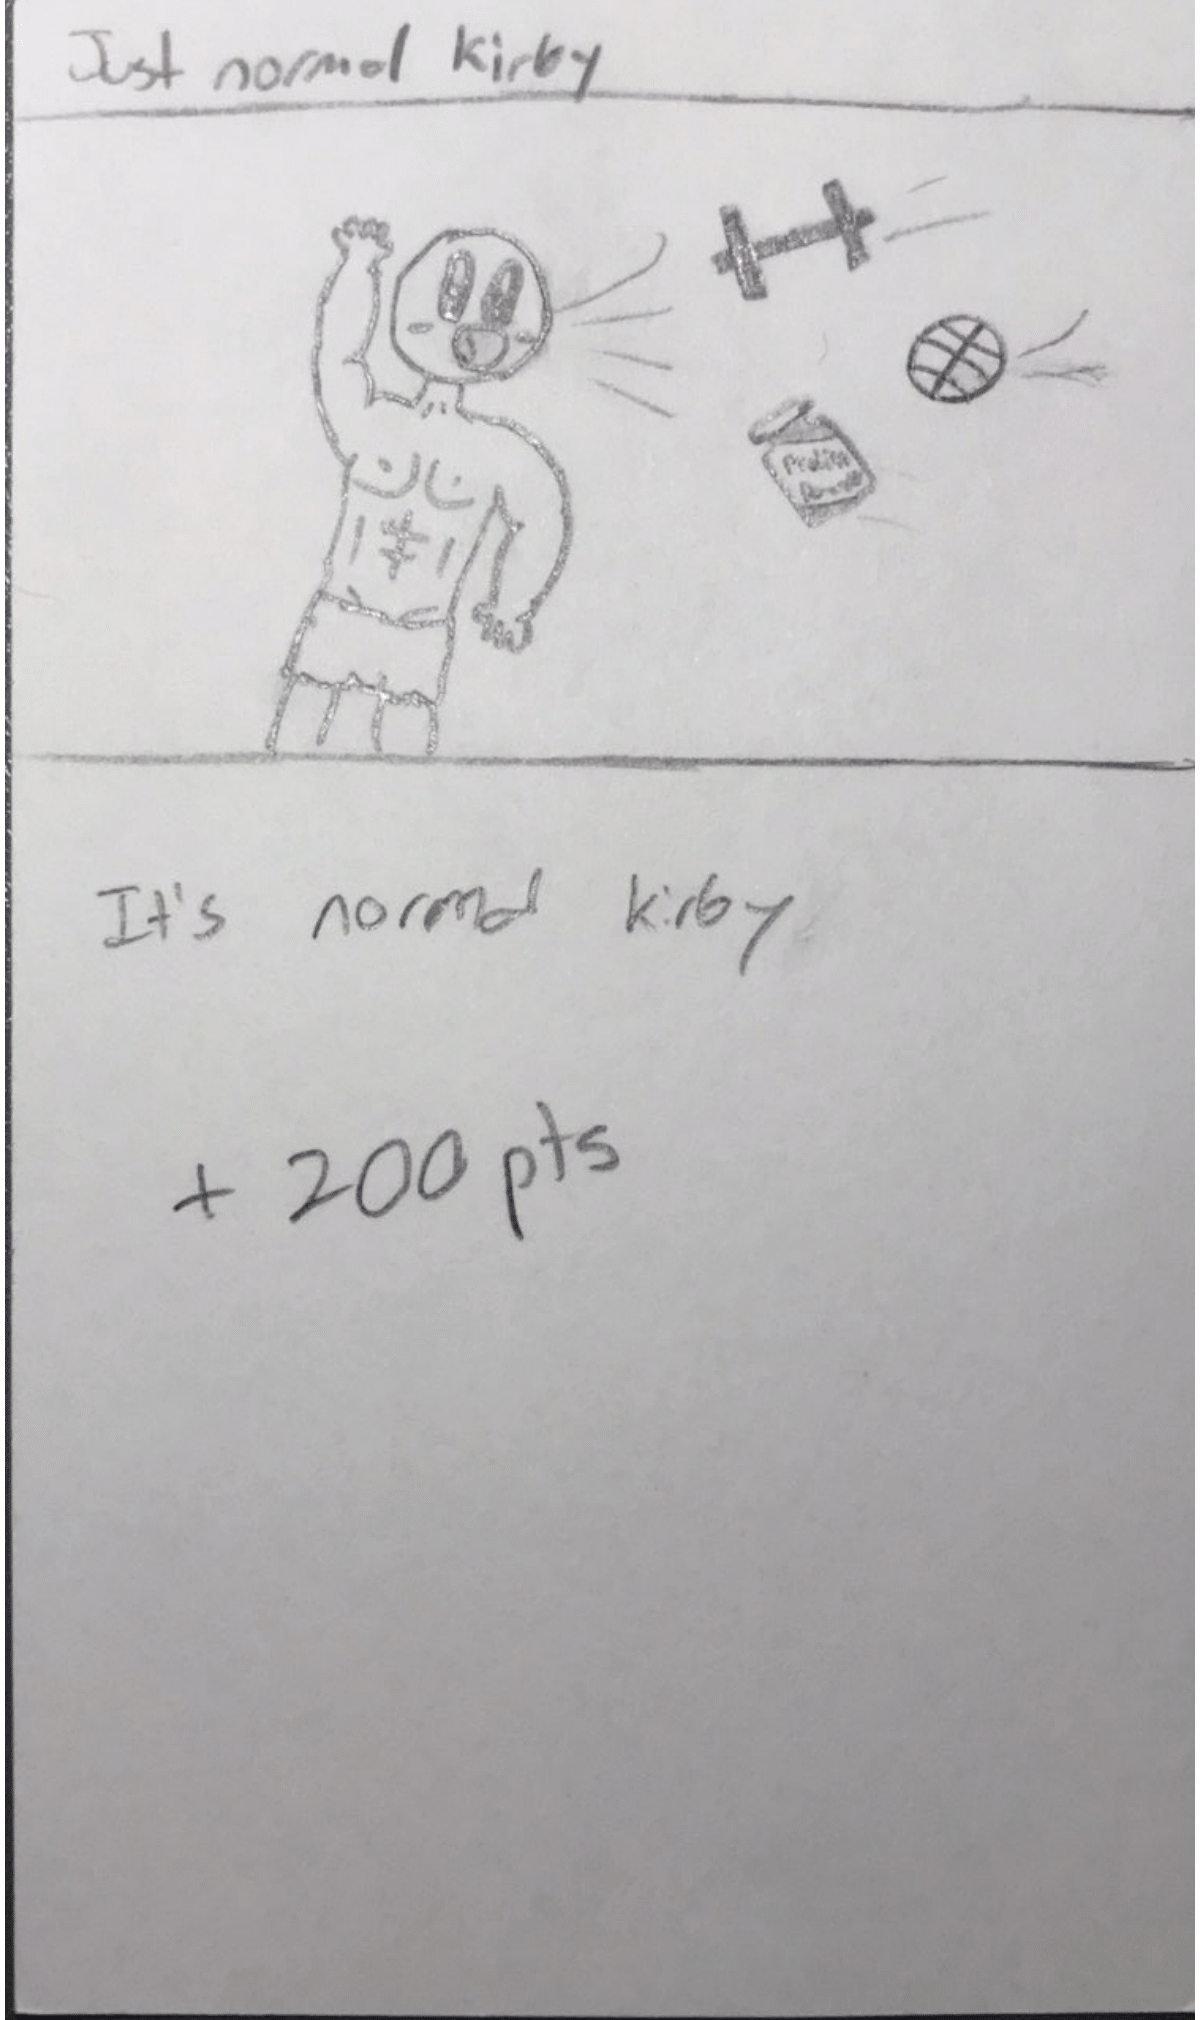 Just normal kirby
Protein
Powder
It's normal kirby
+ 200 pts